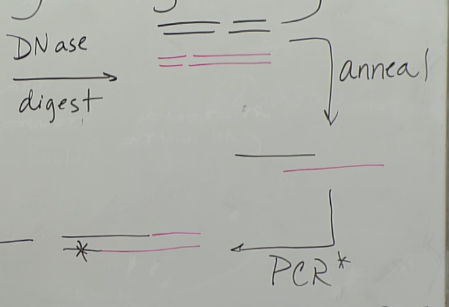 DNase
digest
anneal
*
PCR*